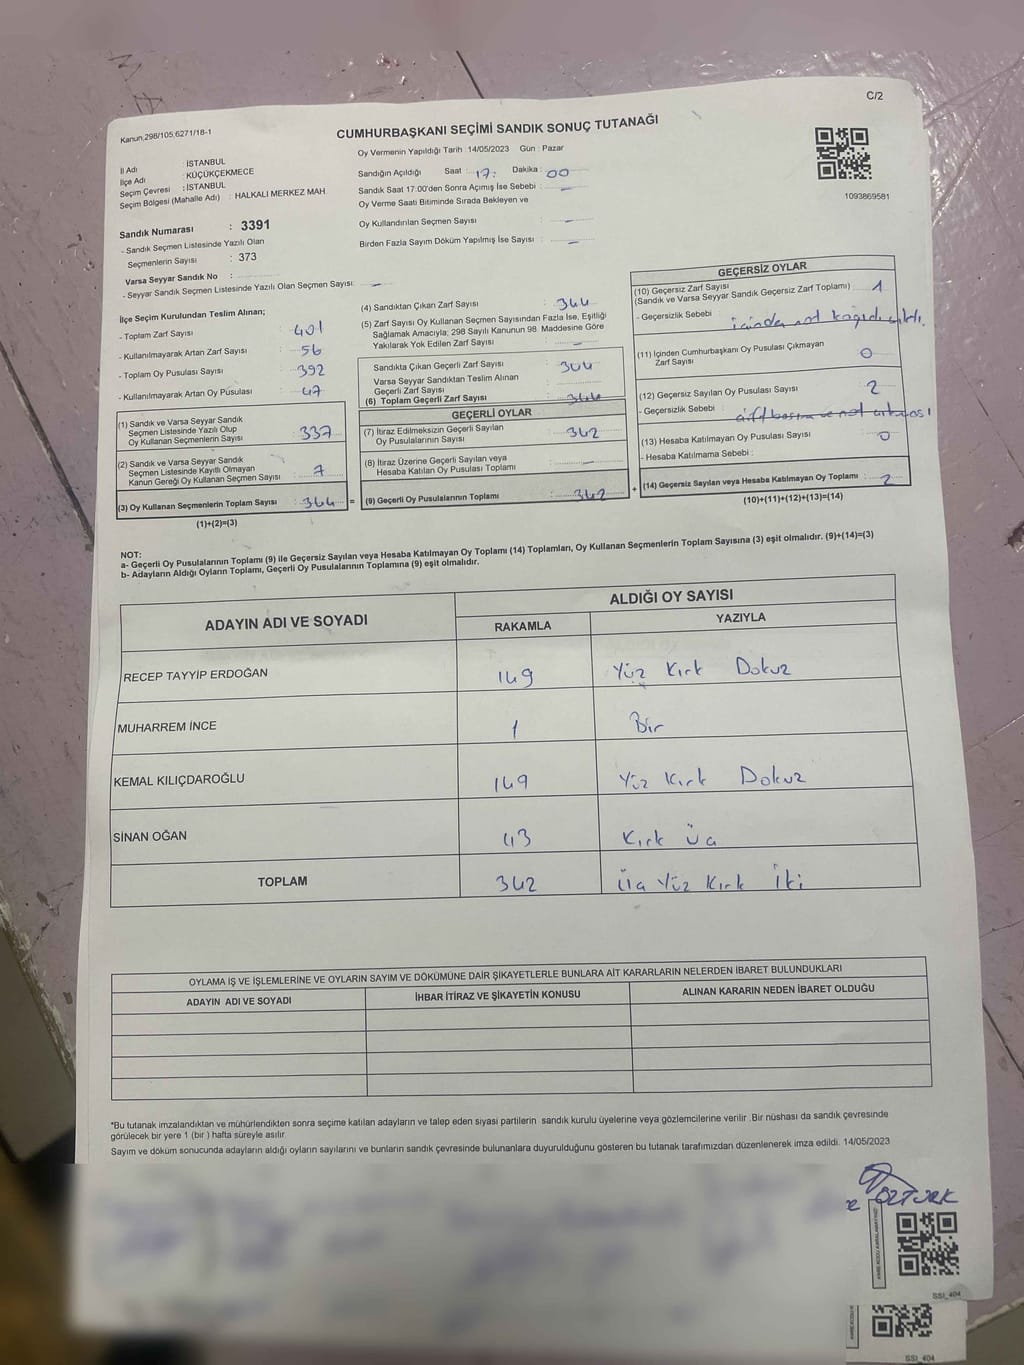 C/2
Kanun,298/105,6271/18-1
CUMHURBAŞKANI SEÇİMİ SANDIK SONUÇ TUTANAĞI
Oy Vermenin Yapıldığı Tarih : 14/05/2023 Gün : Pazar
İl Adı : İSTANBUL
İlçe Adı : KÜÇÜKÇEKMECE
Seçim Çevresi : İSTANBUL
Seçim Bölgesi (Mahalle Adı) : HALKALI MERKEZ MAH.
Sandığın Açıldığı Saat : 17: Dakika : 00
Sandık Saat 17:00'den Sonra Açımış İse Sebebi : -
Oy Verme Saati Bitiminde Sırada Bekleyen ve
Oy Kullandırılan Seçmen Sayısı : -
Birden Fazla Sayım Döküm Yapılmış İse Sayısı : -
1093869581
Sandık Numarası : 3391
- Sandık Seçmen Listesinde Yazılı Olan
Seçmenlerin Sayısı : 373
Varsa Seyyar Sandık No :
- Seyyar Sandık Seçmen Listesinde Yazılı Olan Seçmen Sayısı: -
İlçe Seçim Kurulundan Teslim Alınan;
- Toplam Zarf Sayısı : 401
- Kullanılmayarak Artan Zarf Sayısı : 56
- Toplam Oy Pusulası Sayısı : 392
- Kullanılmayarak Artan Oy Pusulası : 47
(1) Sandık ve Varsa Seyyar Sandık
Seçmen Listesinde Yazılı Olup
Oy Kullanan Seçmenlerin Sayısı : 337
(2) Sandık ve Varsa Seyyar Sandık
Seçmen Listesinde Kayıtlı Olmayan
Kanun Gereği Oy Kullanan Seçmen Sayısı : 7
(3) Oy Kullanan Seçmenlerin Toplam Sayısı : 344 =
(1)+(2)=(3)
(4) Sandıktan Çıkan Zarf Sayısı : 344
(5) Zarf Sayısı Oy Kullanan Seçmen Sayısından Fazla İse, Eşitliği
Sağlamak Amacıyla; 298 Sayılı Kanunun 98. Maddesine Göre
Yakılarak Yok Edilen Zarf Sayısı : -
Sandıkta Çıkan Geçerli Zarf Sayısı : 344
Varsa Seyyar Sandıktan Teslim Alınan
Geçerli Zarf Sayısı :
(6) Toplam Geçerli Zarf Sayısı : 344
GEÇERLİ OYLAR
(7) İtiraz Edilmeksizin Geçerli Sayılan
Oy Pusulalarının Sayısı : 342
(8) İtiraz Üzerine Geçerli Sayılan veya
Hesaba Katılan Oy Pusulası Toplamı : -
(9) Geçerli Oy Pusulalarının Toplamı : 342 +
GEÇERSİZ OYLAR
(10) Geçersiz Zarf Sayısı
(Sandık ve Varsa Seyyar Sandık Geçersiz Zarf Toplamı) : 1
- Geçersizlik Sebebi : içinden not kağıdı çıktı.
(11) İçinden Cumhurbaşkanı Oy Pusulası Çıkmayan
Zarf Sayısı : 0
(12) Geçersiz Sayılan Oy Pusulası Sayısı : 2
- Geçersizlik Sebebi :
(13) Hesaba Katılmayan Oy Pusulası Sayısı : 0
- Hesaba Katılmama Sebebi :
(14) Geçersiz Sayılan veya Hesaba Katılmayan Oy Toplamı : 2
(10)+(11)+(12)+(13)=(14)
NOT:
a- Geçerli Oy Pusulalarının Toplamı (9) ile Geçersiz Sayılan veya Hesaba Katılmayan Oy Toplamı (14) Toplamları, Oy Kullanan Seçmenlerin Toplam Sayısına (3) eşit olmalıdır. (9)+(14)=(3)
b- Adayların Aldığı Oyların Toplamı, Geçerli Oy Pusulalarının Toplamına (9) eşit olmalıdır.
ADAYIN ADI VE SOYADI
ALDIĞI OY SAYISI
RAKAMLA YAZIYLA
RECEP TAYYİP ERDOĞAN 149 Yüz Kırk Dokuz
MUHARREM İNCE 1 Bir
KEMAL KILIÇDAROĞLU 149 Yüz Kırk Dokuz
SİNAN OĞAN 43 Kırk üç
TOPLAM 342 Üç Yüz Kırk İki
OYLAMA İŞ VE İŞLEMLERİNE VE OYLARIN SAYIM VE DÖKÜMÜNE DAİR ŞİKAYETLERLE BUNLARA AİT KARARLARIN NELERDEN İBARET BULUNDUKLARI
ADAYIN ADI VE SOYADI İHBAR İTİRAZ VE ŞİKAYETİN KONUSU ALINAN KARARIN NEDEN İBARET OLDUĞU
*Bu tutanak imzalandıktan ve mühürlendikten sonra seçime katılan adayların ve talep eden siyasi partilerin sandık kurulu üyelerine veya gözlemcilerine verilir .Bir nüshası da sandık çevresinde
görülecek bir yere 1 (bir ) hafta süreyle asılır.
Sayım ve döküm sonucunda adayların aldığı oyların sayılarını ve bunların sandık çevresinde bulunanlara duyurulduğunu gösteren bu tutanak tarafımızdan düzenlenerek imza edildi. 14/05/2023
ÖZTÜRK
SSI_404
SSI_404